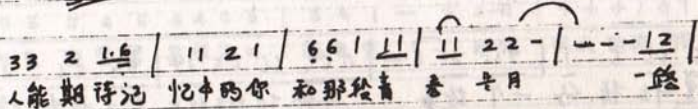 33 2 1.6 | 11 2 1 | 66 1 11 | 11 22 - | --- 12 |
人能 期待记 忆中的你 和那段青 春 岁月 一路